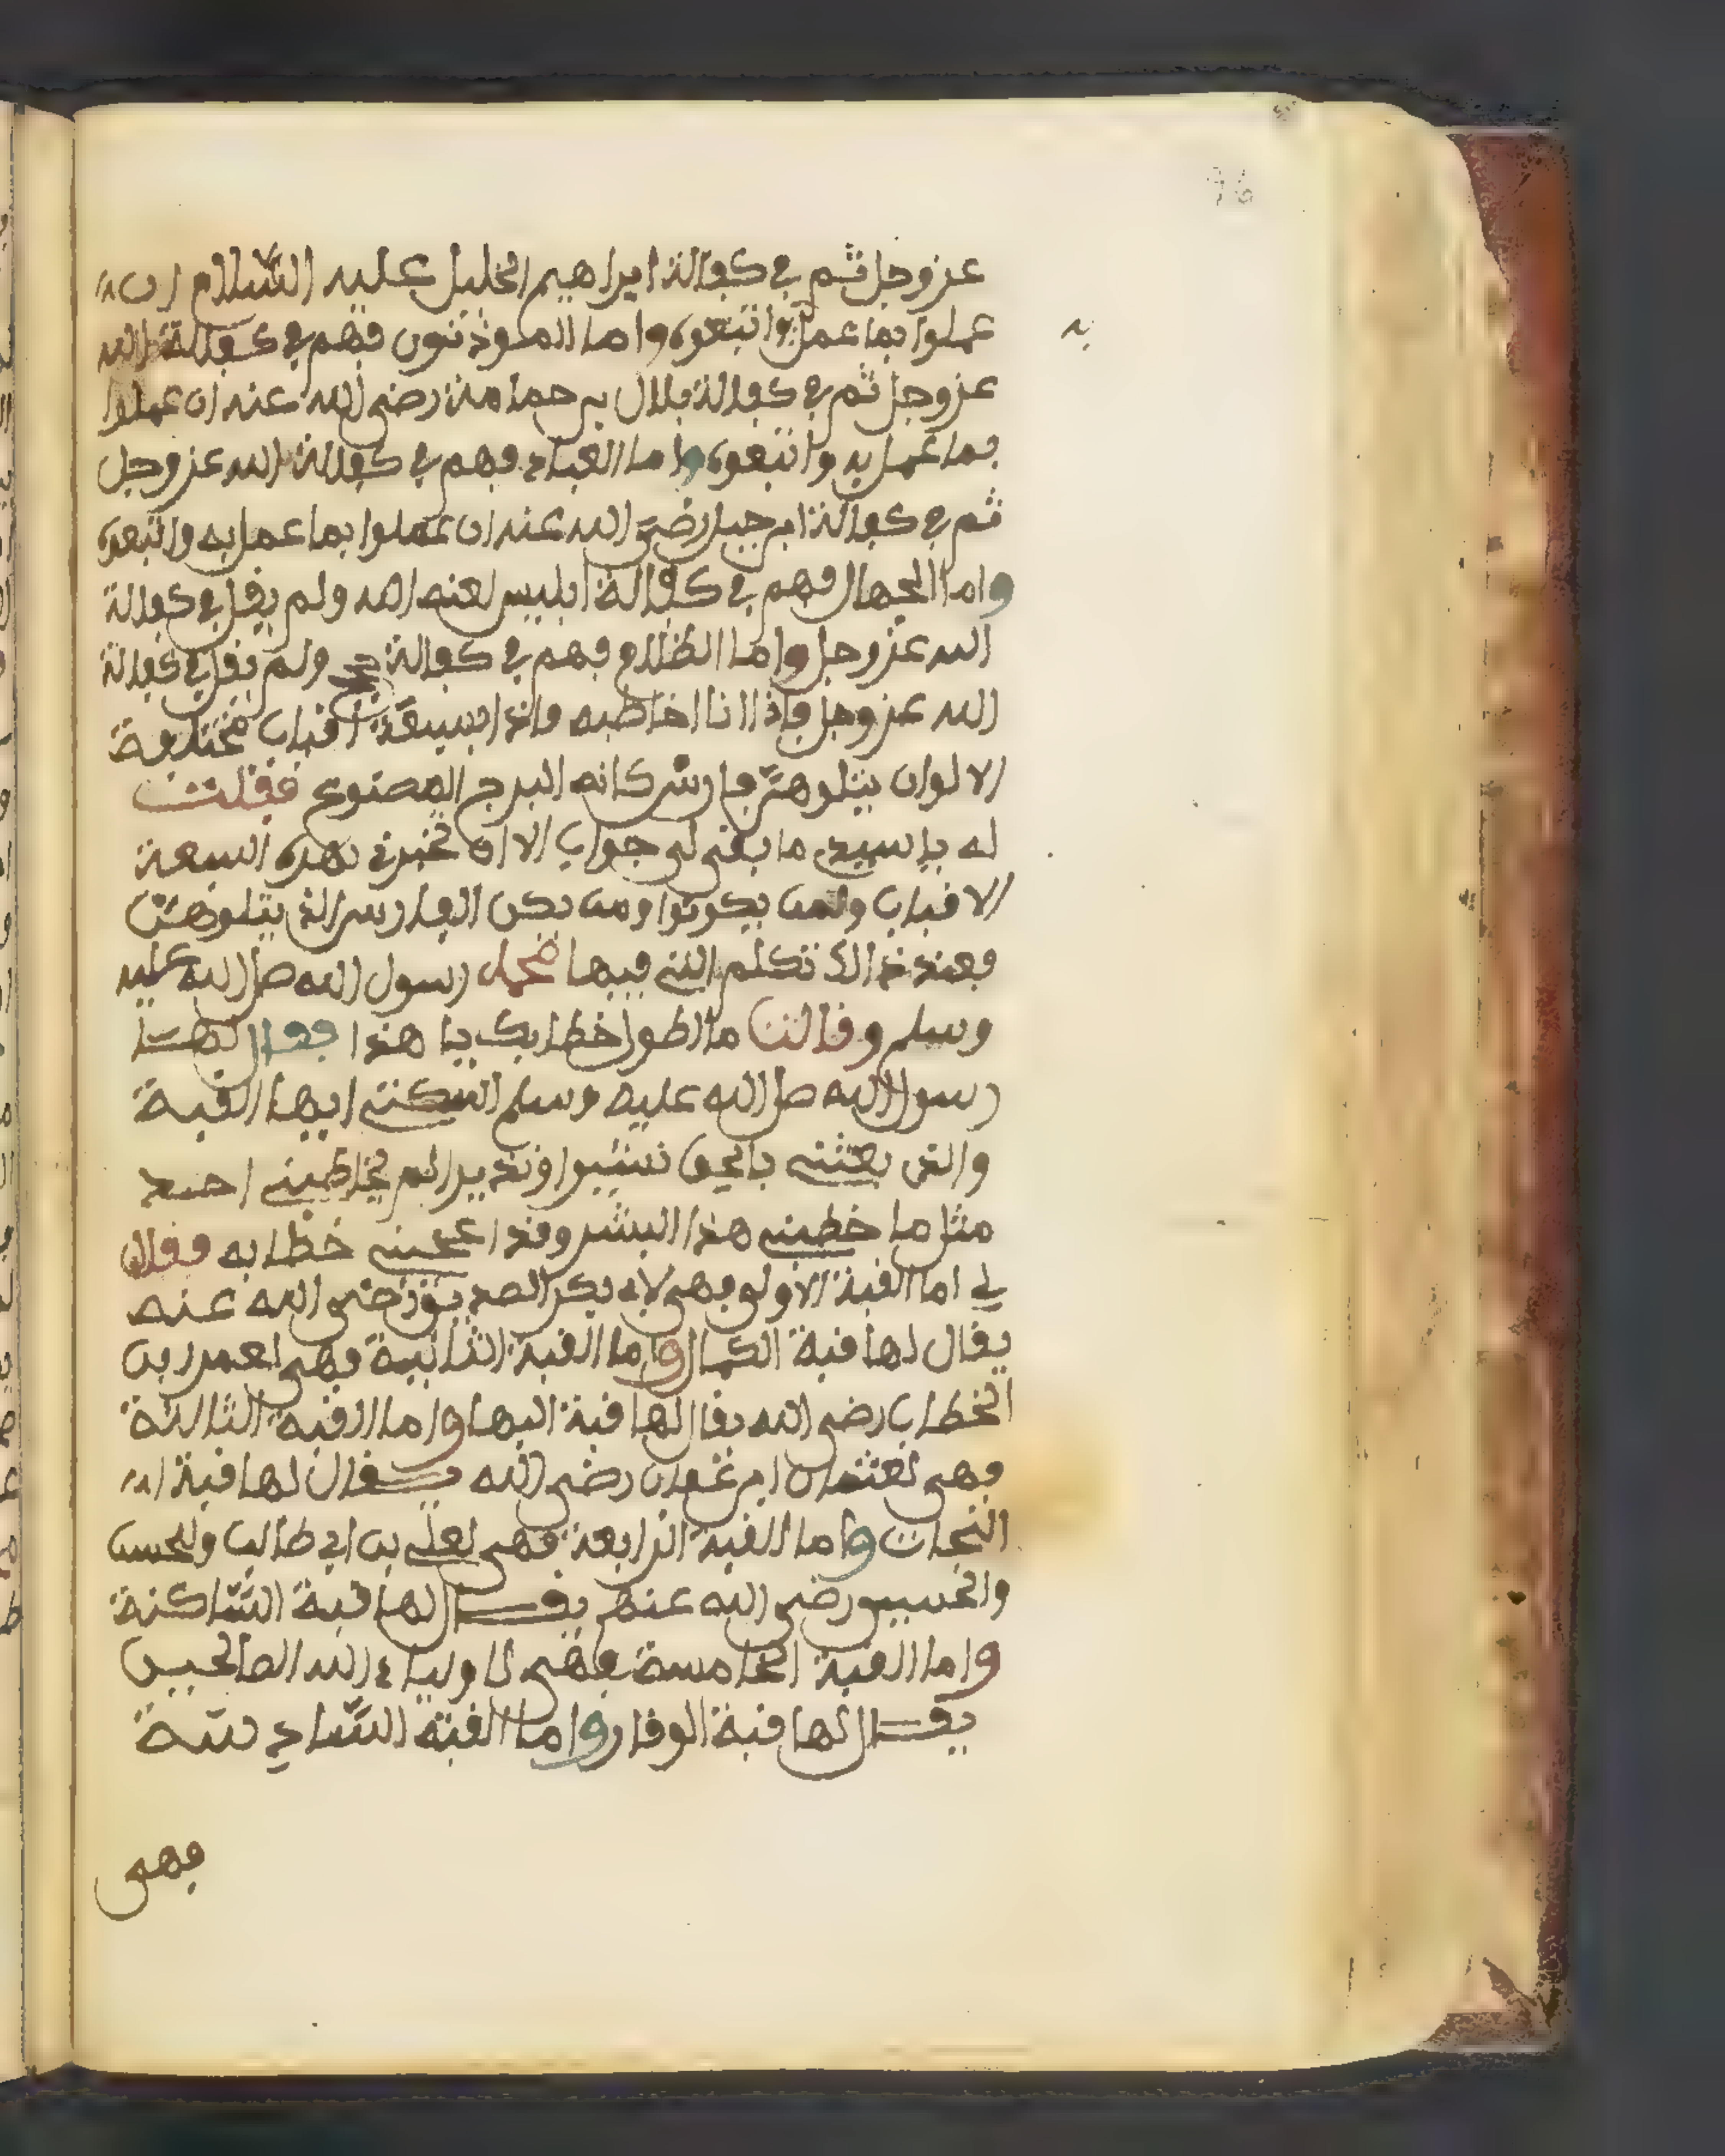 76
عز وجل ثم في كفالة ابراهيم الخليل عليه السلام ان
عملوا بما عمل واتبعوه واما الموذنون فهم في كفالة الله
به
عز وجل ثم في كفالة بلال بن حمامة رضي الله عنه ان عملوا
بما عمل به واتبعوه واما العباد فهم في كفالة الله عز وجل
ثم في كفالة ابن جبل رضي الله عنه ان عملوا بما عمل به واتبعوه
واما الجهال فهم في كفالة ابليس لعنه الله ولم يقل في كفالة
الله عز وجل واما الظلام فهم في كفالة ولم يقل في كفالة
الله عز وجل فاذا انا اخاطبه واذا بسبعة اقباب مختلفة
الالوان يتلوهن فارس كانه البرج المصنوع فقلت
له يا سيدي ما بقي لي جواب الا ان تخبرني بهذه السبعة
الاقباب ولمن يكونوا ومن يكن الفارس الذي يتلوهن
فعند ذالك تكلم التي فيها محمد رسول الله صل الله عليه
وسلم وقالت ما اطول خطابك يا هذا فقال لها
رسول الله صل الله عليه وسلم اسكتي ايها القبة
والذي بعثني بالحق نشيرا ونذيرا لم يخاطبني احد
مثل ما خطبني هذا البشر وقد اعجبني خطابه فقال
لي اما القبة الاولى فهي لابي بكر الصديق رضي الله عنه
يقال لها قبة الكمال واما القبة الثانية فهي لعمر ابن
الخطاب رضي الله يقال لها قبة البها واما القبة الثالثة
فهي لعثمان ابن عفان رضي الله يقال لها قبة ال
النجات واما القبة الرابعة فهي لعلي بن ابي طالب والحسن
والحسين رضي الله عنهم يقال لها قبة الساكنة
واما القبة الخامسة فهي لاولياء الله الصالحين
يقال لها قبة الوقار واما القبة السادسة
فهي